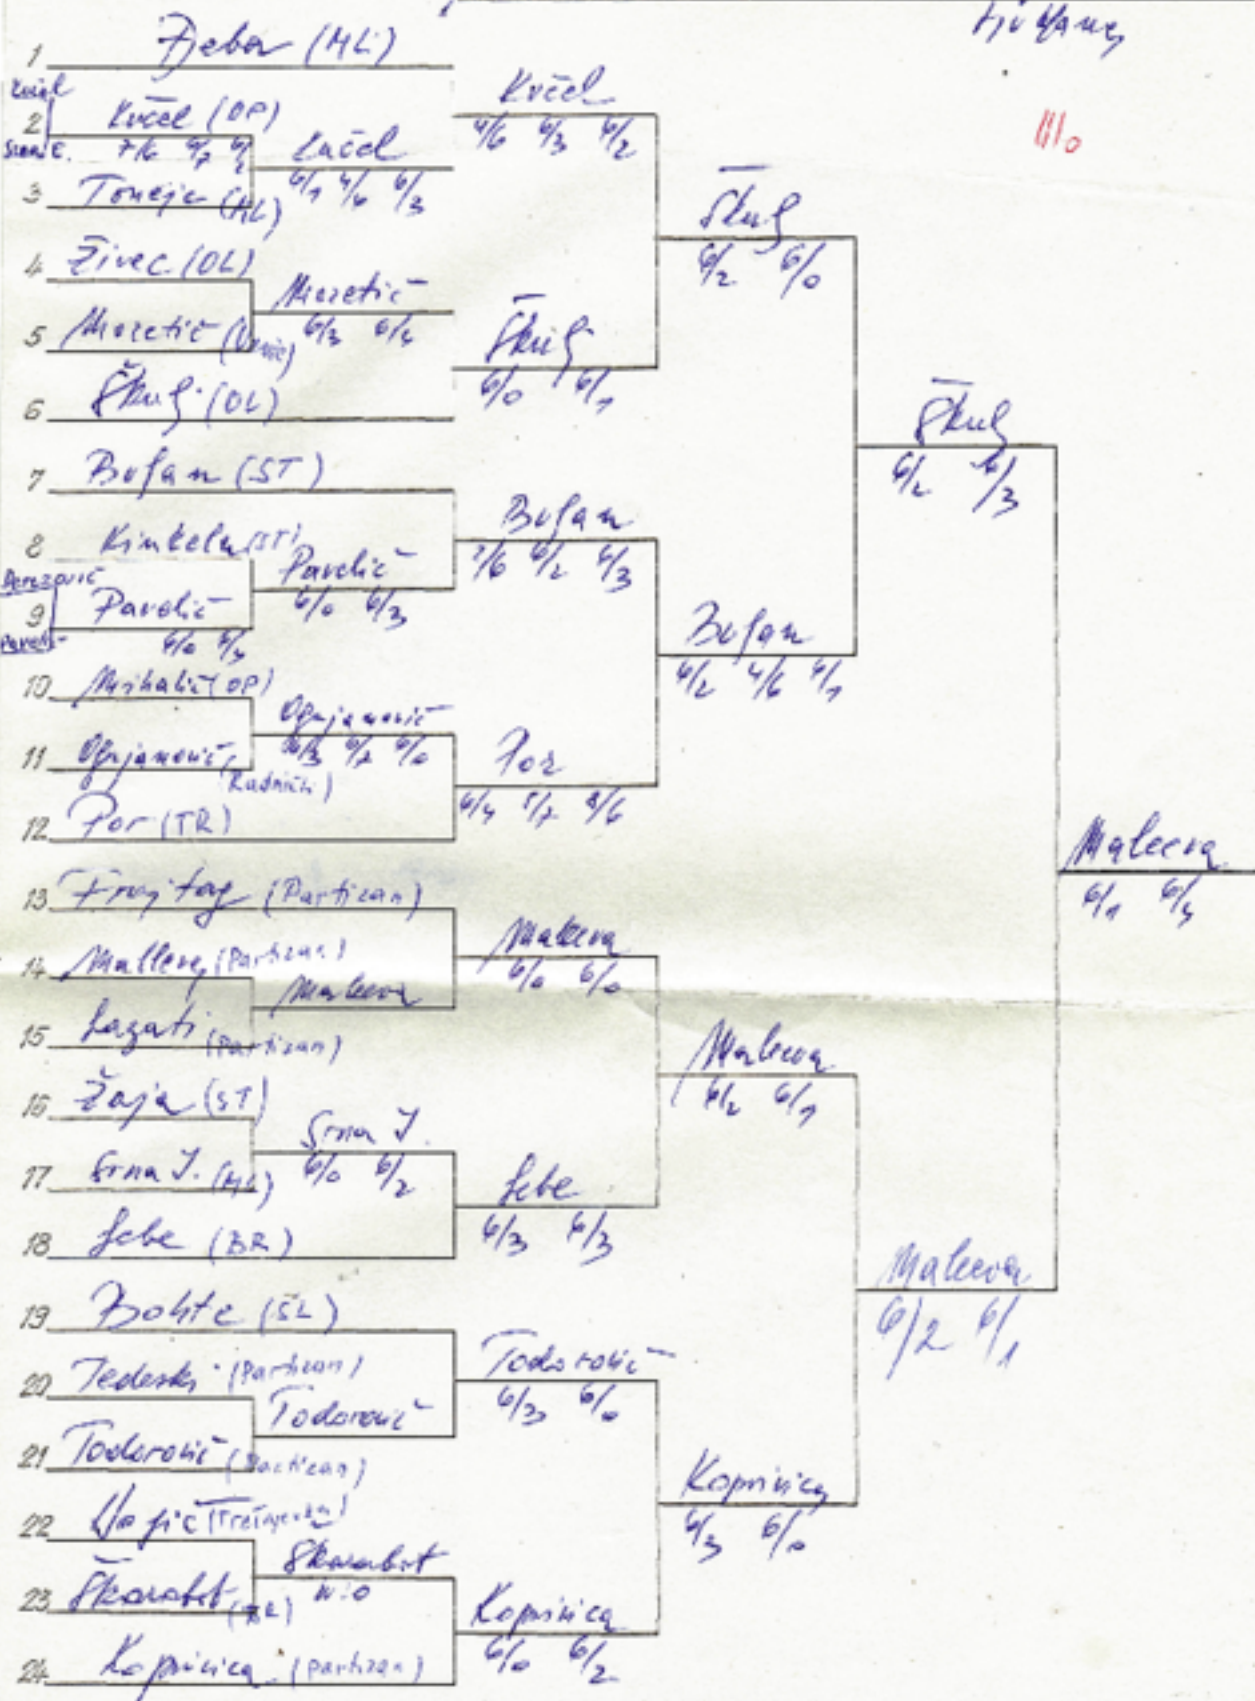 Ljubljana
1 Zjeba (ML)
Kučel
2 Kučel (OP)
7/6 6/7 6/2
3 Toneje (ML)
4 Živec (OL)
5 Mozetič
6 Škulj (OL)
7 Bufan (ST)
8 Kinkela (ST)
Perezovič
9 Pavelič
Pavelič
10 Mihalič (OP)
11 Ognjanovič (Radnički)
12 Por (TR)
13 Frajtag (Partizan)
14 Malleev (Partizan)
15 Lagati (Partizan)
16 Žaja (ST)
17 Srna J. (ML)
18 Lebe (BR)
19 Bohte (ŠL)
20 Tedeski (Partizan)
21 Todorovič (Partizan)
22
23 Škarabot (BR)
24 Koprivica (Partizan)
Kučel
6/1 4/6 6/3
Mozetič
6/3 6/4
Pavelič
6/0 6/3
Ognjanovič
Maleeva
Srna J.
6/0 6/2
Todorovič
Škarabot
w.o
Kučel
4/6 6/3 6/2
Škulj
6/0 6/1
Bufan
7/6 6/2 6/3
Por
Maleeva
6/0 6/0
Lebe
6/3 6/3
Todorovič
6/3 6/0
Koprivica
6/0 6/2
Škulj
6/2 6/0
Bufan
6/2 4/6 6/1
Maleeva
6/2 6/1
Koprivica
6/3 6/0
Škulj
6/2 6/3
Maleeva
6/2 6/1
Maleeva
6/1 6/4